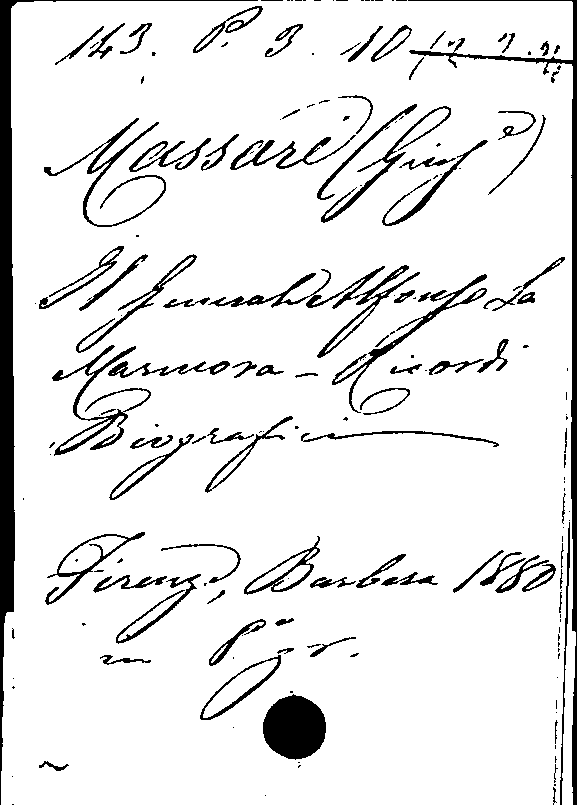 143. P. 3. 10
Massari (Giuse)
Il Generale Alfonso La
Marmora - Ricordi
Biografici
Firenze, Barbera 1880
in 8° gr.